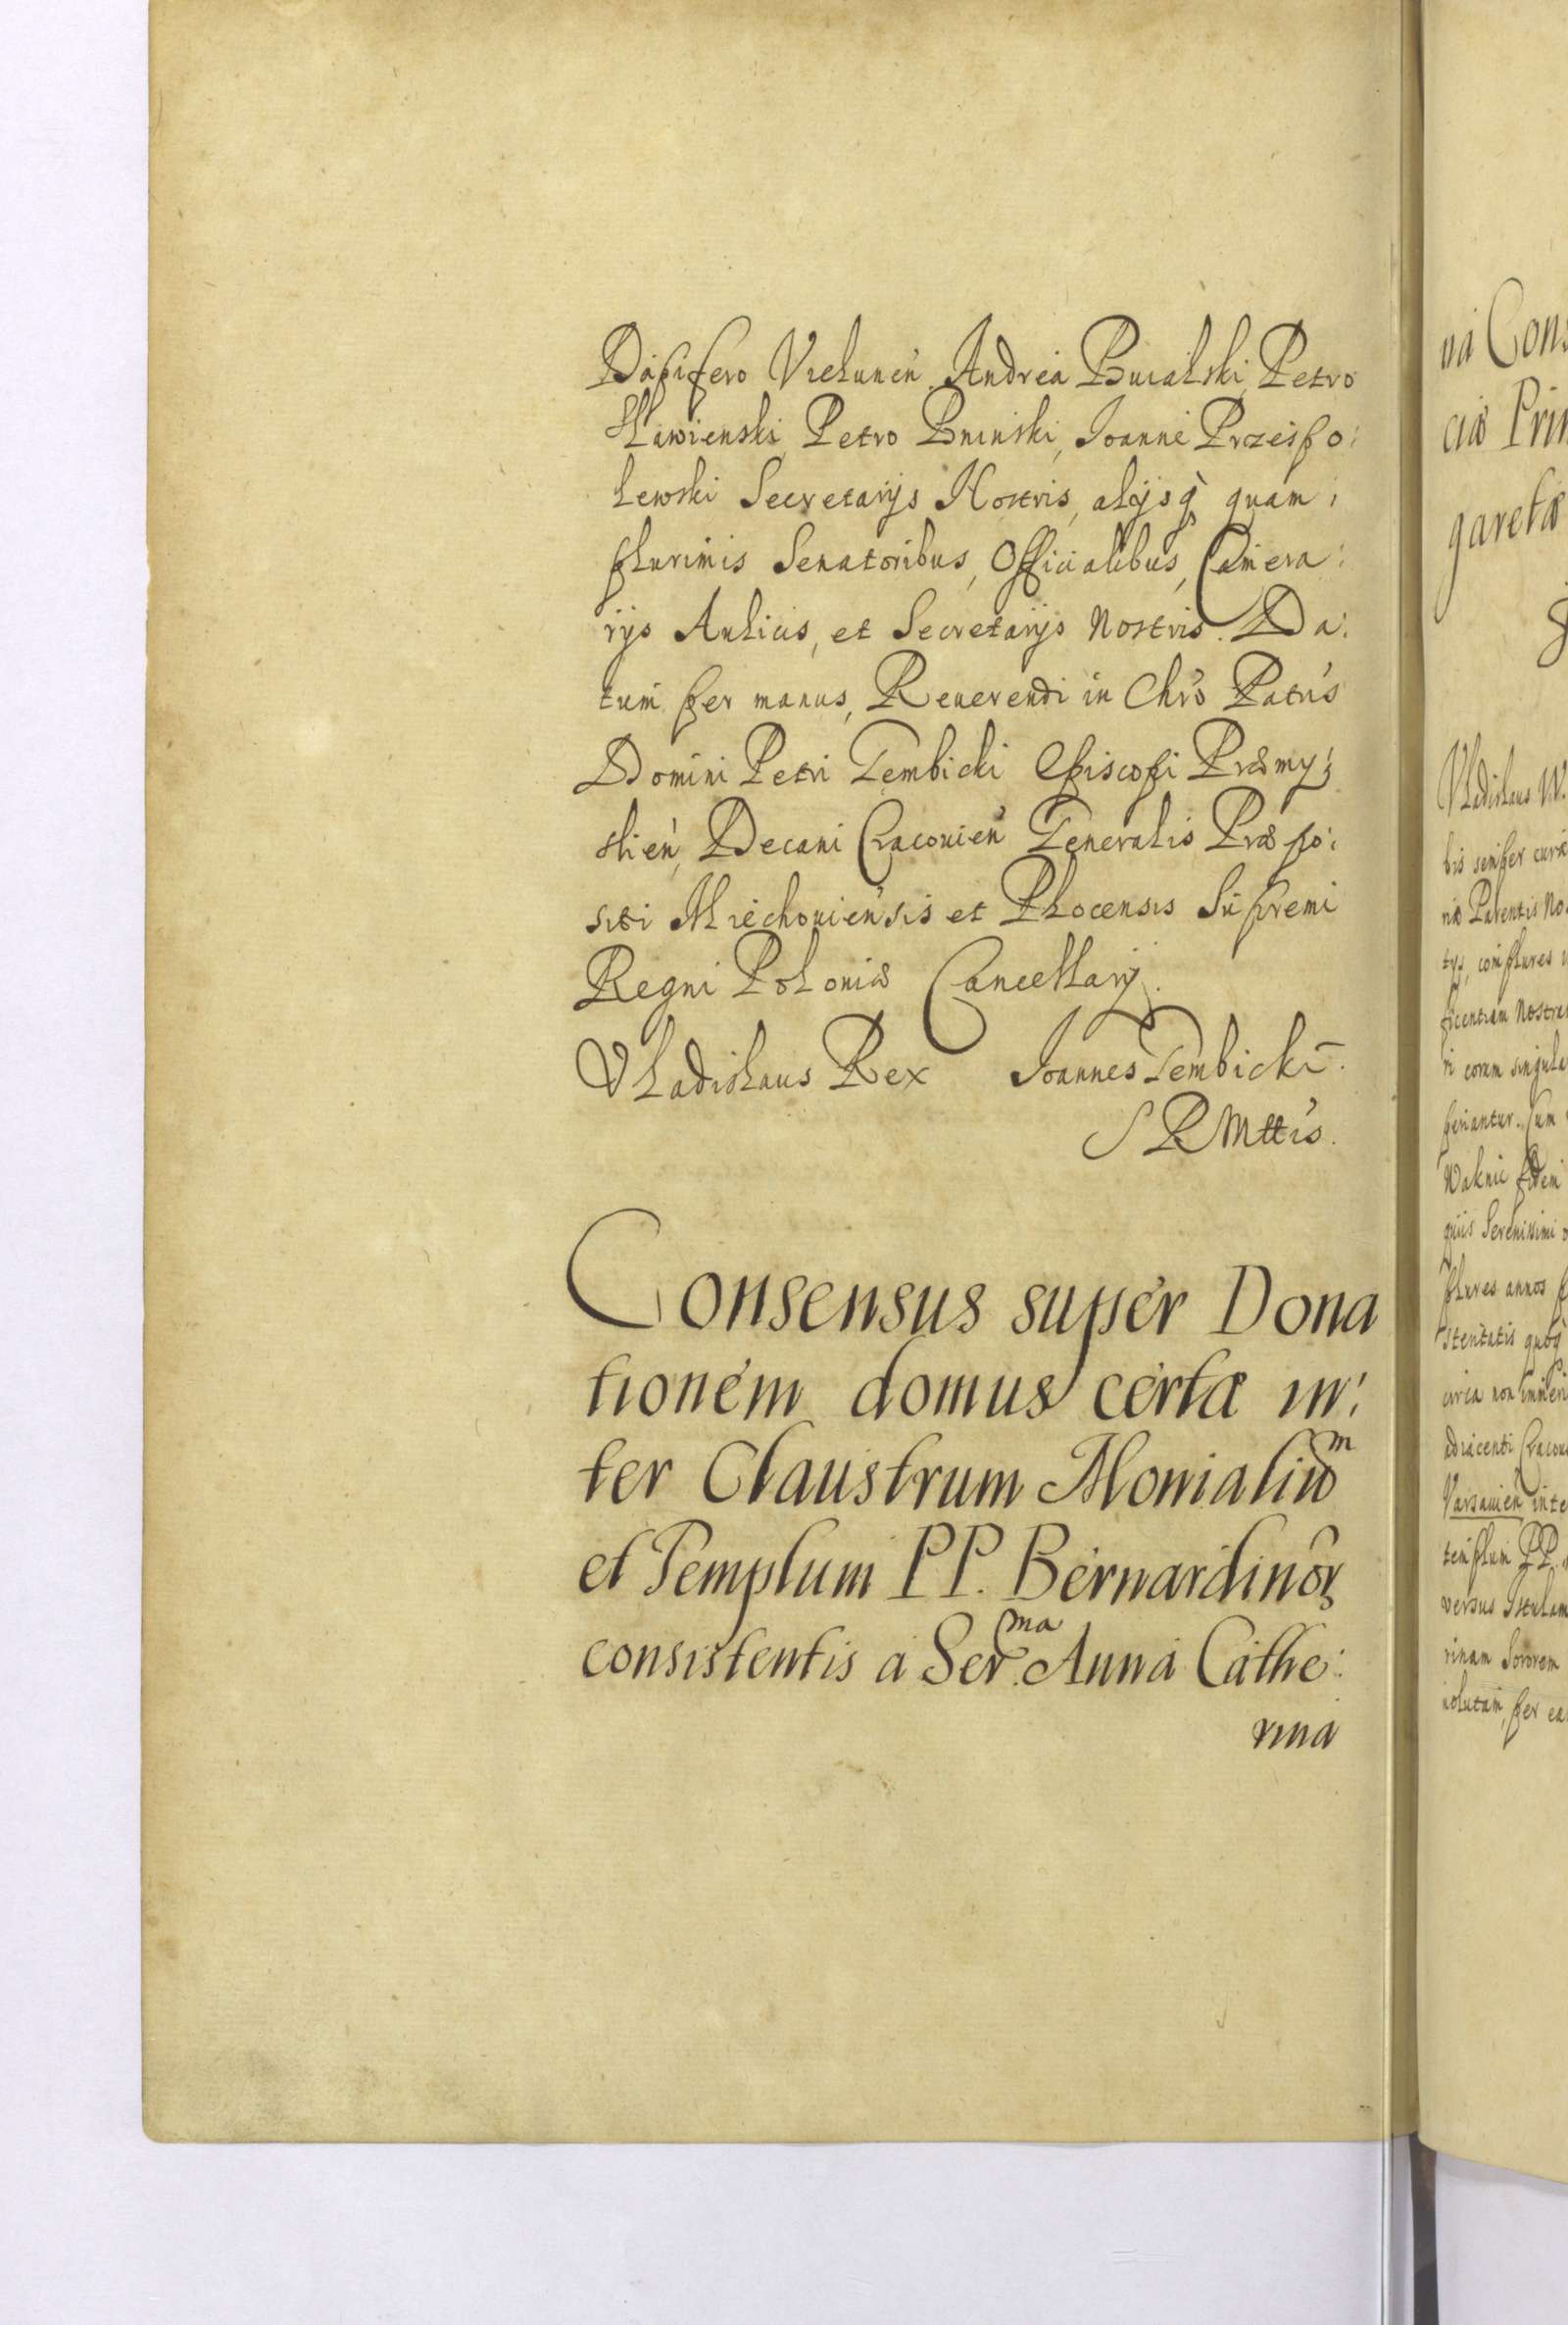 Dapifero Vielunen̄. Andrea Bucalski, Petro
Petro Bninski, Joanne Przeispo:
lewski Secretarijs Nostris, alijsq̀ quam:
plurimis Senatoribus, Officialibus, Camera:
rijs Aulicis, et Secretarijs Nostris. Da:
tum per manus, Reuerendi in Chro Patris
Domini Petri Gembicki Episcopi Præmy:
slien̄, Decani Cracouien̄ Generalis Præpo:
siti Miechouiensis et Plocensis Supremi
Regni Poloniæ Cancellarij.
Vladislaus Rex Joannes Gembicki.
S R Mttis.
Consensus super Dona
tionem domus certæ in:
ter Claustrum Monialiũm
et Templum PP. Bernardinoꝝ
consistentis a Ser.ma Anna Cathe:
rina
na Cons
ciæ Prin
garetæ
Vladislaus IV.
bis semper curæ
riæ Parentis No
tys, complures
ficentiam Nostra
ri eorum singula
periantur. Cum
Waknic
Serenissimi
plures annos
quoq̀
circa non
adiacenti Cracou
Varsauien̄ inte
templum PP.
versus Istulam
rinam Sororem
uolutam, per ea